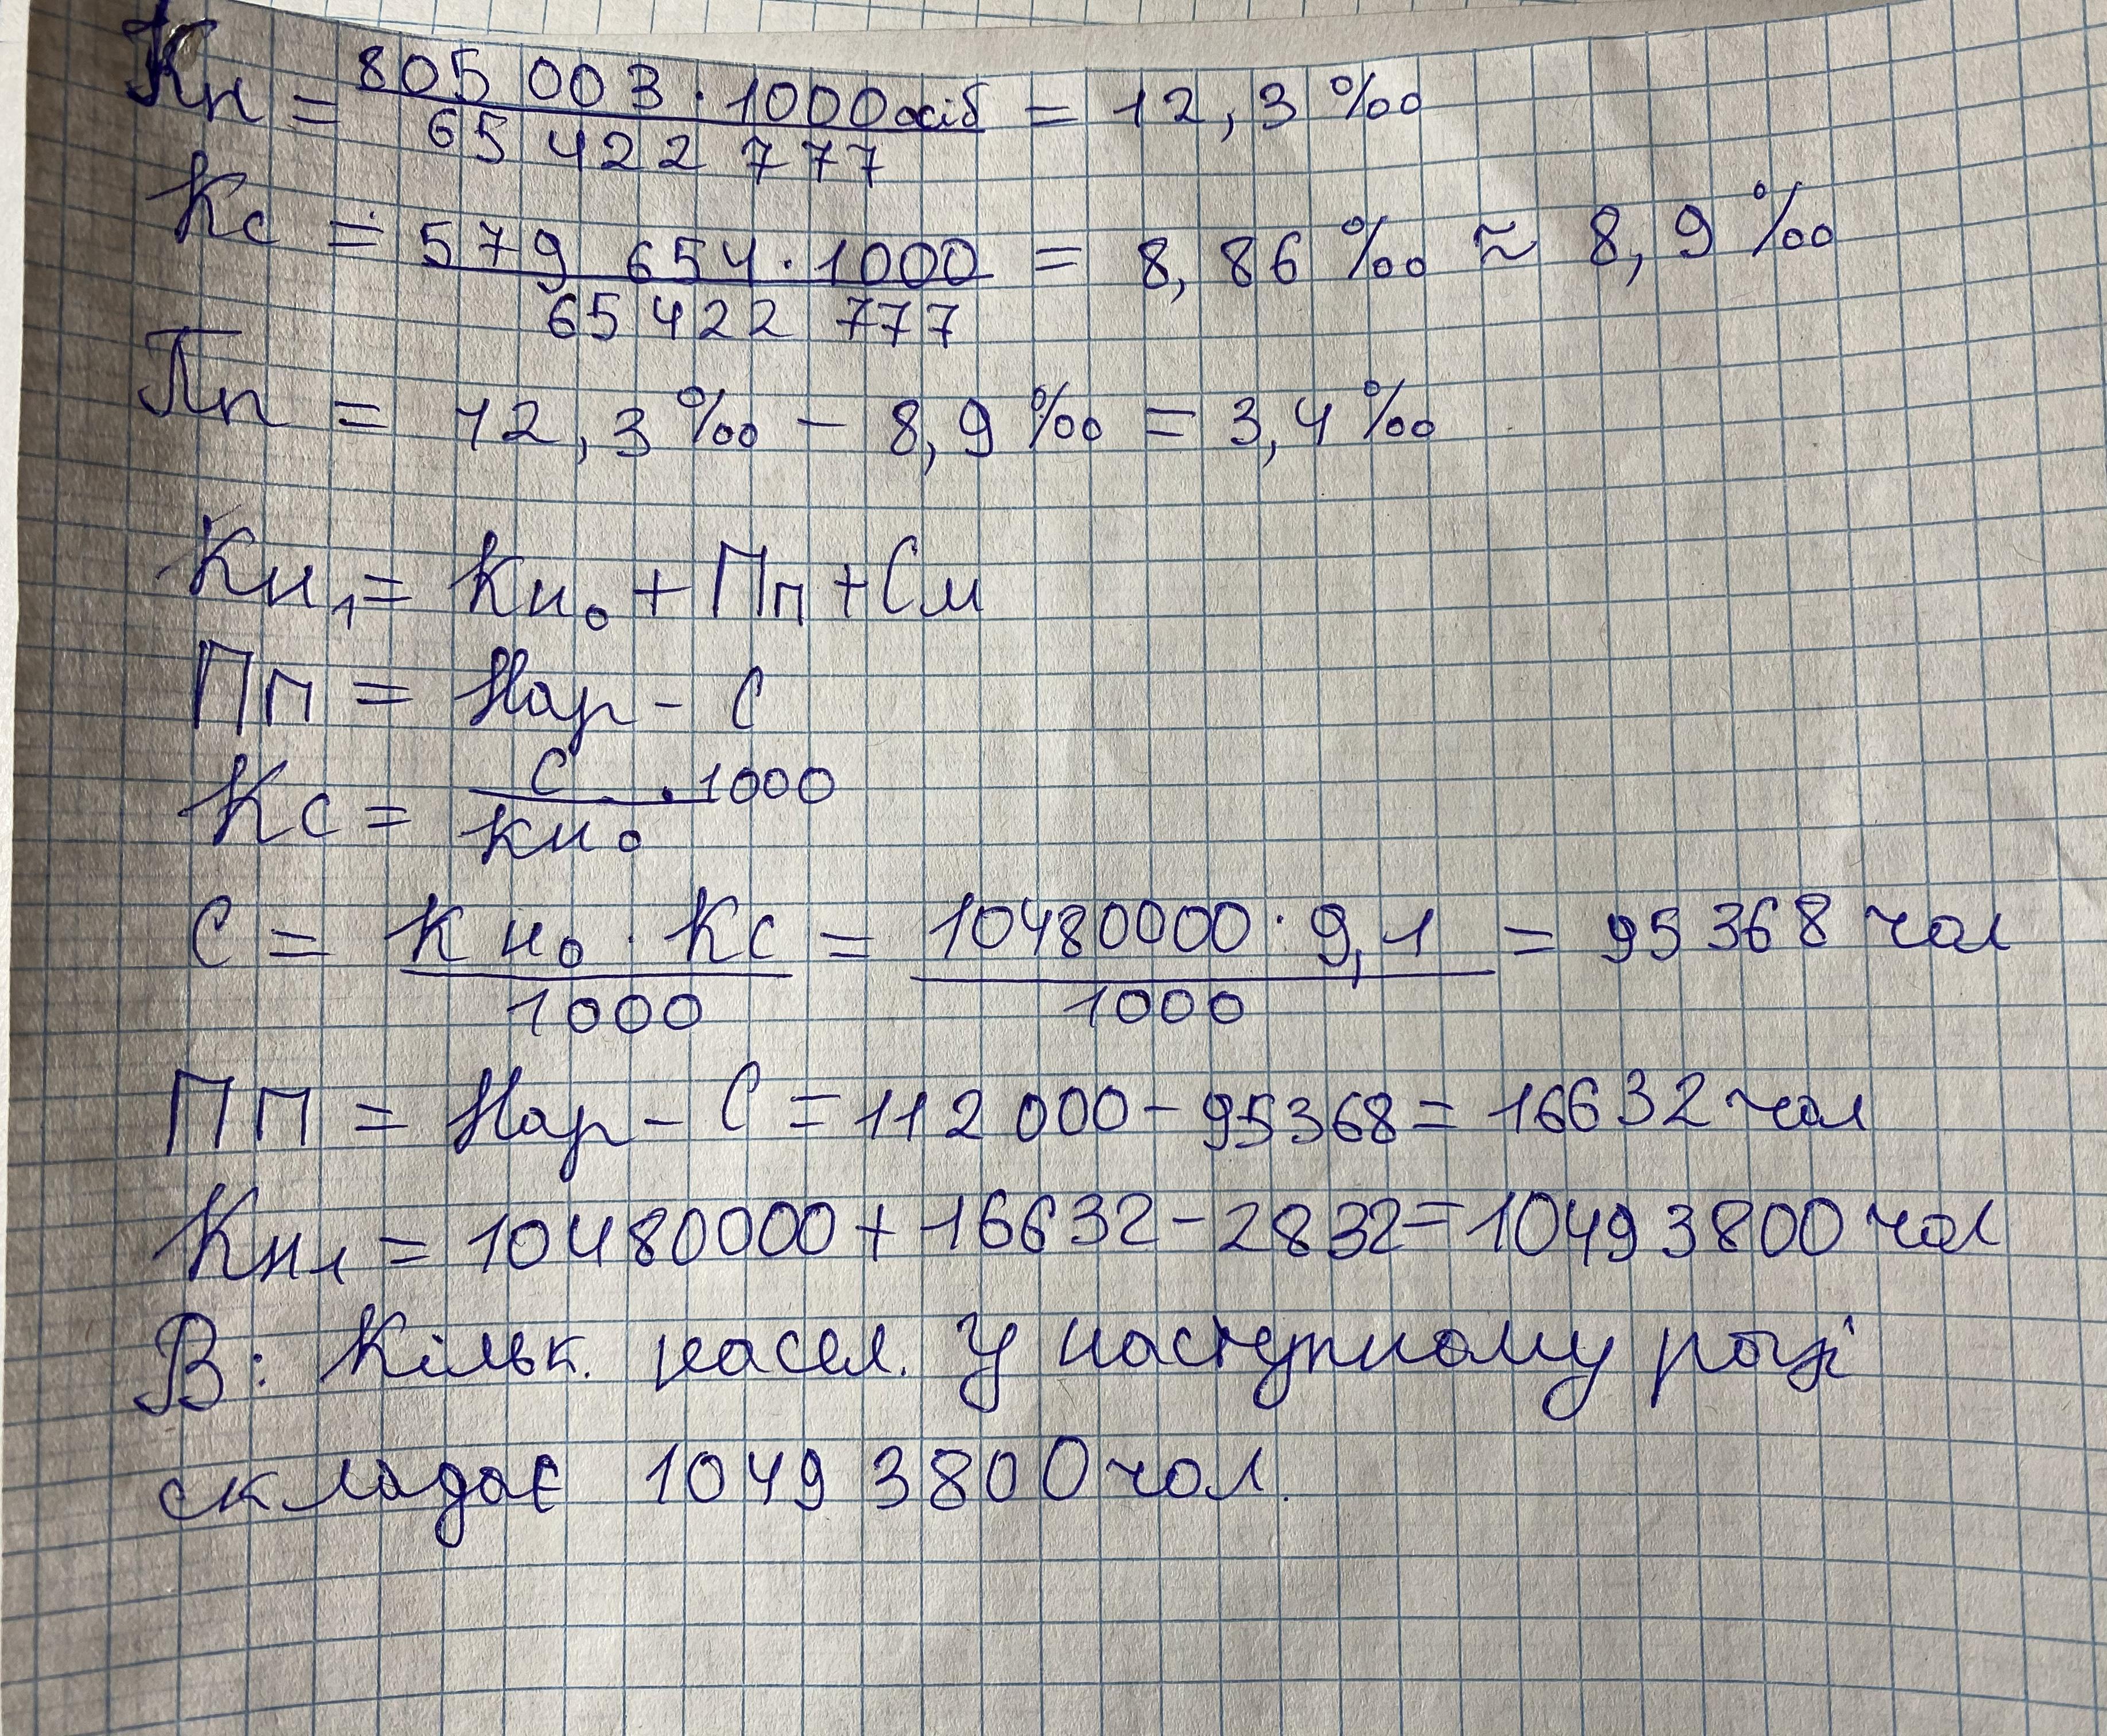 Кн = 805 003 · 1000 осіб / 65 422 777 = 12,3 ‰
Кс = 579 654 · 1000 / 65 422 777 = 8,86 ‰ ≈ 8,9 ‰
Пп = 12,3 ‰ - 8,9 ‰ = 3,4 ‰
Кн₁ = Кн₀ + Пп + См
Пп = Нар - С
Кс = С / Кн₀ · 1000
С = Кн₀ · Кс / 1000 = 10480000 · 9,1 / 1000 = 95 368 чол
ПП = Нар - С = 112 000 - 95368 = 16632 чол
Кн₁ = 10480000 + 16632 - 2832 = 10493800 чол
В: Кільк. насел. у наступному році
складає 10493800 чол.